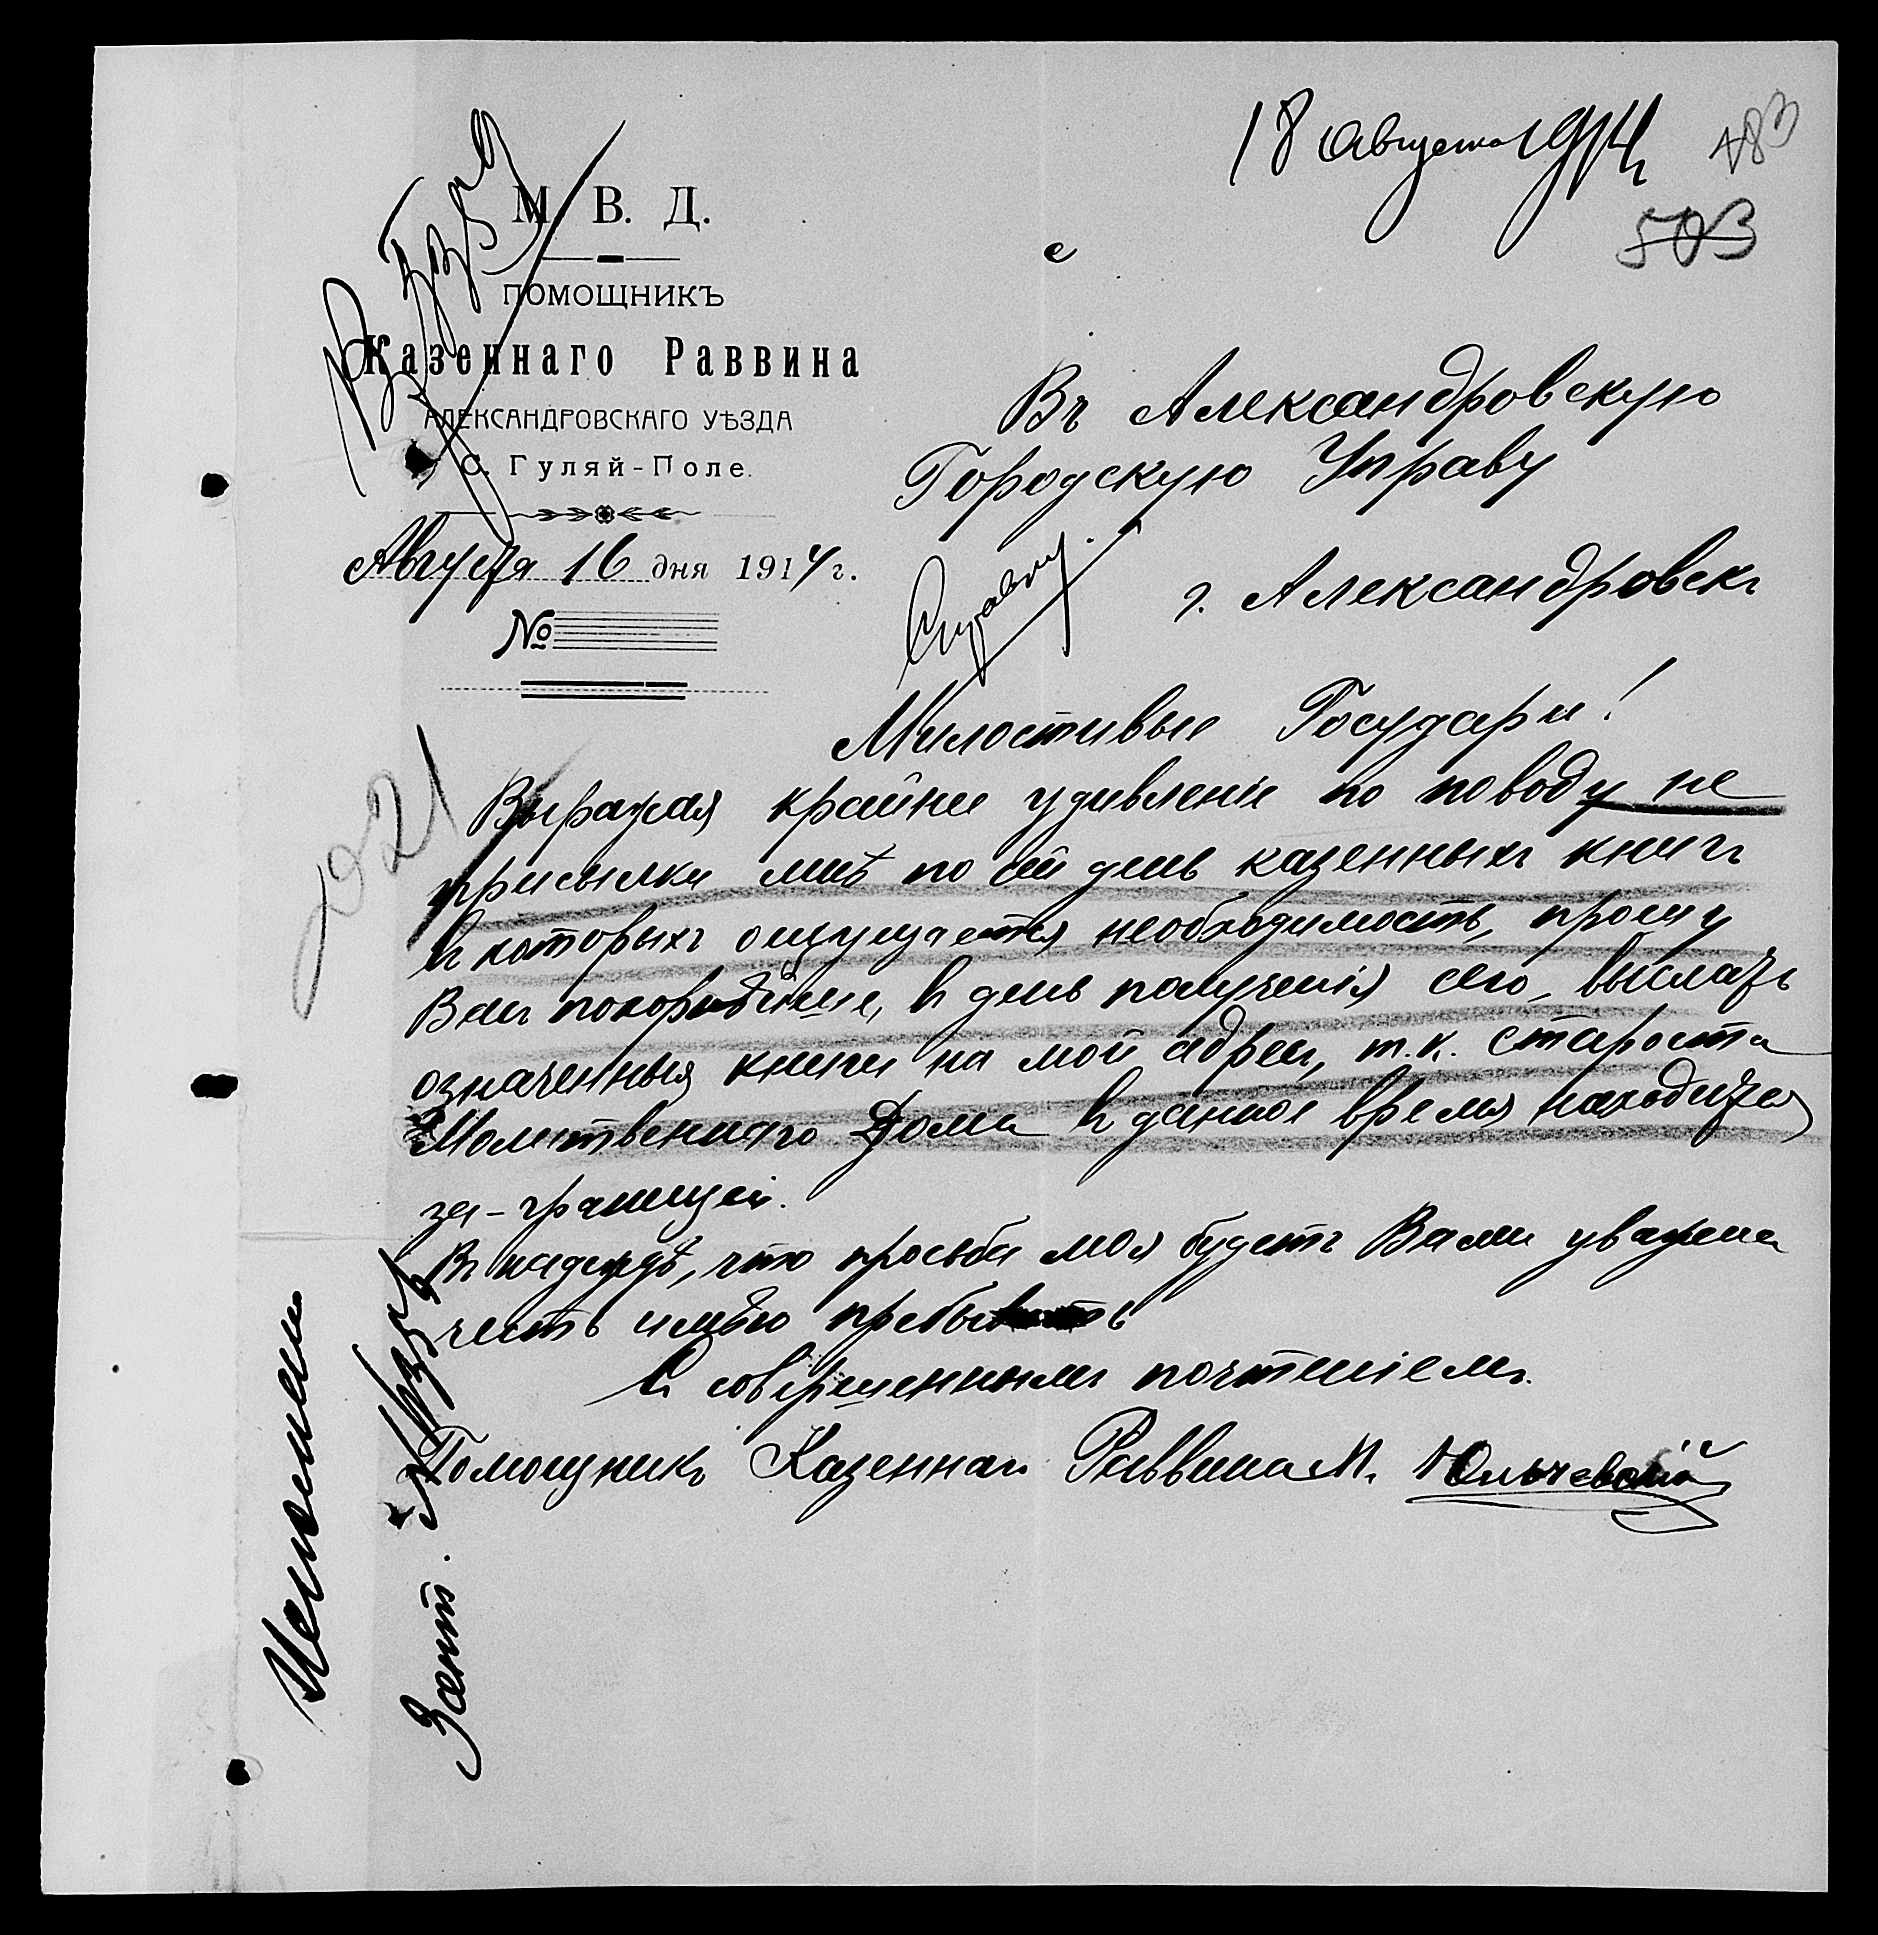 18 Августа 1914
483
503
М. В. Д.
ПОМОЩНИКЪ
Казеннаго Раввина
АЛЕКСАНДРОВСКАГО УѢЗДА
С. Гуляй-Поле.
Августа 16 дня 1914 г.
№
Въ Александровскую
Городскую Управу
г. Александровскъ
Справку.
Милостивые Государи!
Выражая крайнее удивленіе по поводу не
присылки мнѣ по сей день казенныхъ книгъ
въ которыхъ ощущается необходимость, прошу
Васъ покорнѣйше, въ день полученія сего, выслать
означенныя книги на мой адресъ, т.к. староста
Молитвеннаго Дома въ данное время находится
за-границей.
Въ надеждѣ, что просьба моя будетъ Вами уважена
честь имѣю пребывать
Съ совершеннымъ почтеніемъ.
Помощникъ Казеннаго Раввина М. Юльчевскій
2921